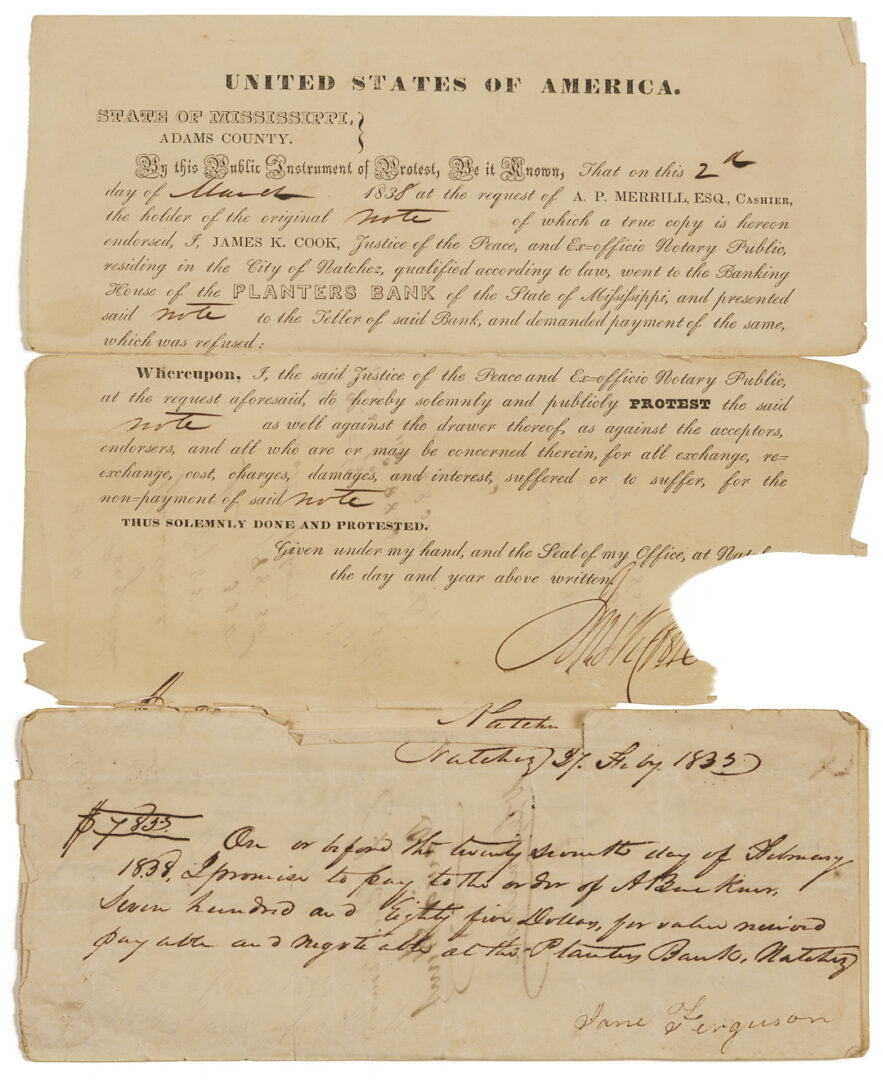 UNITED STATES OF AMERICA.
STATE OF MISSISSIPPI, }
ADAMS COUNTY.
By this Public Instrument of Protest, Be it Known, That on this 2d
day of March 1838 at the request of A. P. MERRILL, ESQ., CASHIER,
the holder of the original note of which a true copy is hereon
endorsed, I, JAMES K. COOK, Justice of the Peace, and Ex=officio Notary Public,
residing in the City of Natchez, qualified according to law, went to the Banking
House of the PLANTERS BANK of the State of Mississippi, and presented
said note to the Teller of said Bank, and demanded payment of the same,
which was refused:
Whereupon, I, the said Justice of the Peace and Ex=officio Notary Public,
at the request aforesaid, do hereby solemnly and publicly PROTEST the said
note as well against the drawer thereof, as against the acceptors,
endorsers, and all who are or may be concerned therein, for all exchange, re=
exchange, cost, charges, damages, and interest, suffered or to suffer, for the
non=payment of said note
THUS SOLEMNLY DONE AND PROTESTED.
Given under my hand, and the Seal of my Office, at Natch
the day and year above written.
Jas K Cook
Natche
Natchez 27. Feby. 1835
On or before the twenty seventh day of February
1838, I promise to pay to the order of A
Seven hundred and Eighty five Dollars, for value received
payable and negotiable at the Planters Bank, Natchez
Jane Ferguson